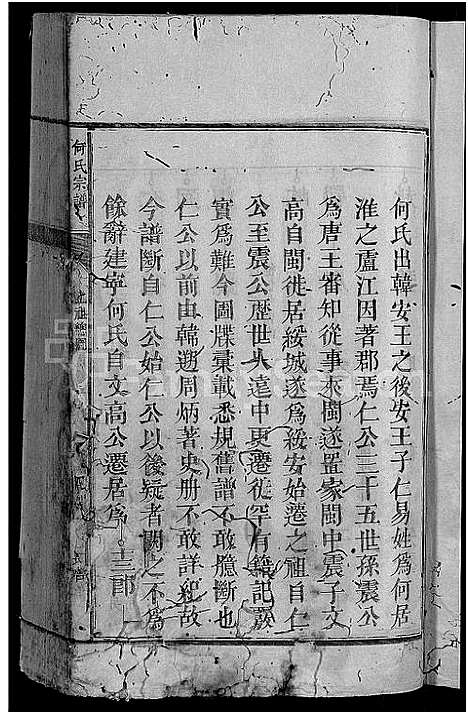 何氏出韓安王之後安王子仁易姓爲何居
淮之廬江因著郡焉仁公三十五世孫震公
爲唐王審知從事來閩遂置家閩中震子文
高自閩徙居綏城遂爲綏安始遷之祖自仁
公至震公歷世久遠中更遷徙罕有籍記覈
實爲難今圖牒彙載悉規舊譜不敢臆斷也
仁公以前由韓遡周炳著史册不敢詳紀故
今譜斷自仁公始仁公以後疑者闕之不爲
餘辭建寧何氏自文高公遷居爲三郎
何氏宗譜